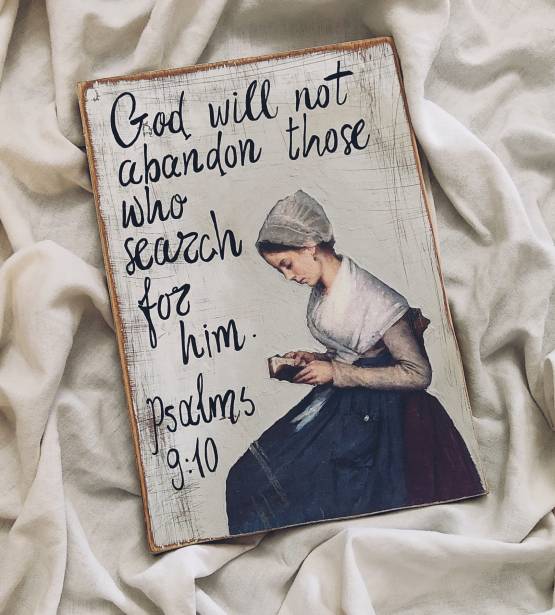 God will not
abandon those
who
search
for
him.
Psalms
9:10